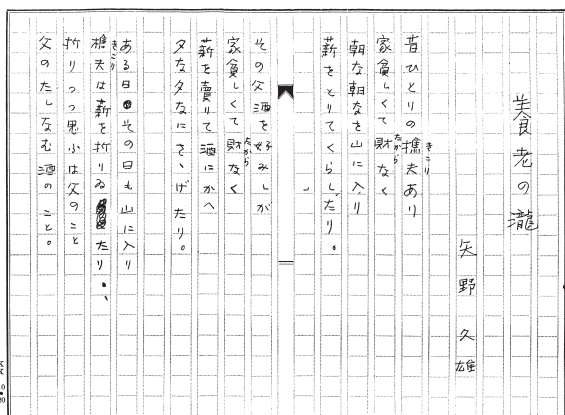 養老の瀧
矢野久雄
昔ひとりの樵夫あり
きこり
家貧しくて財なく
たから
朝な朝なを山に入り
薪をとりてくらしたり。
その父酒を好みしが
家貧しくて財なく
たから
薪を賣りて酒にかへ
夕な夕なにさゝげたり。
ある日その日も山に入り
樵夫は薪を折りゐたり。
きこり
折りつつ思ふは父のこと
父のたしなむ酒のこと。